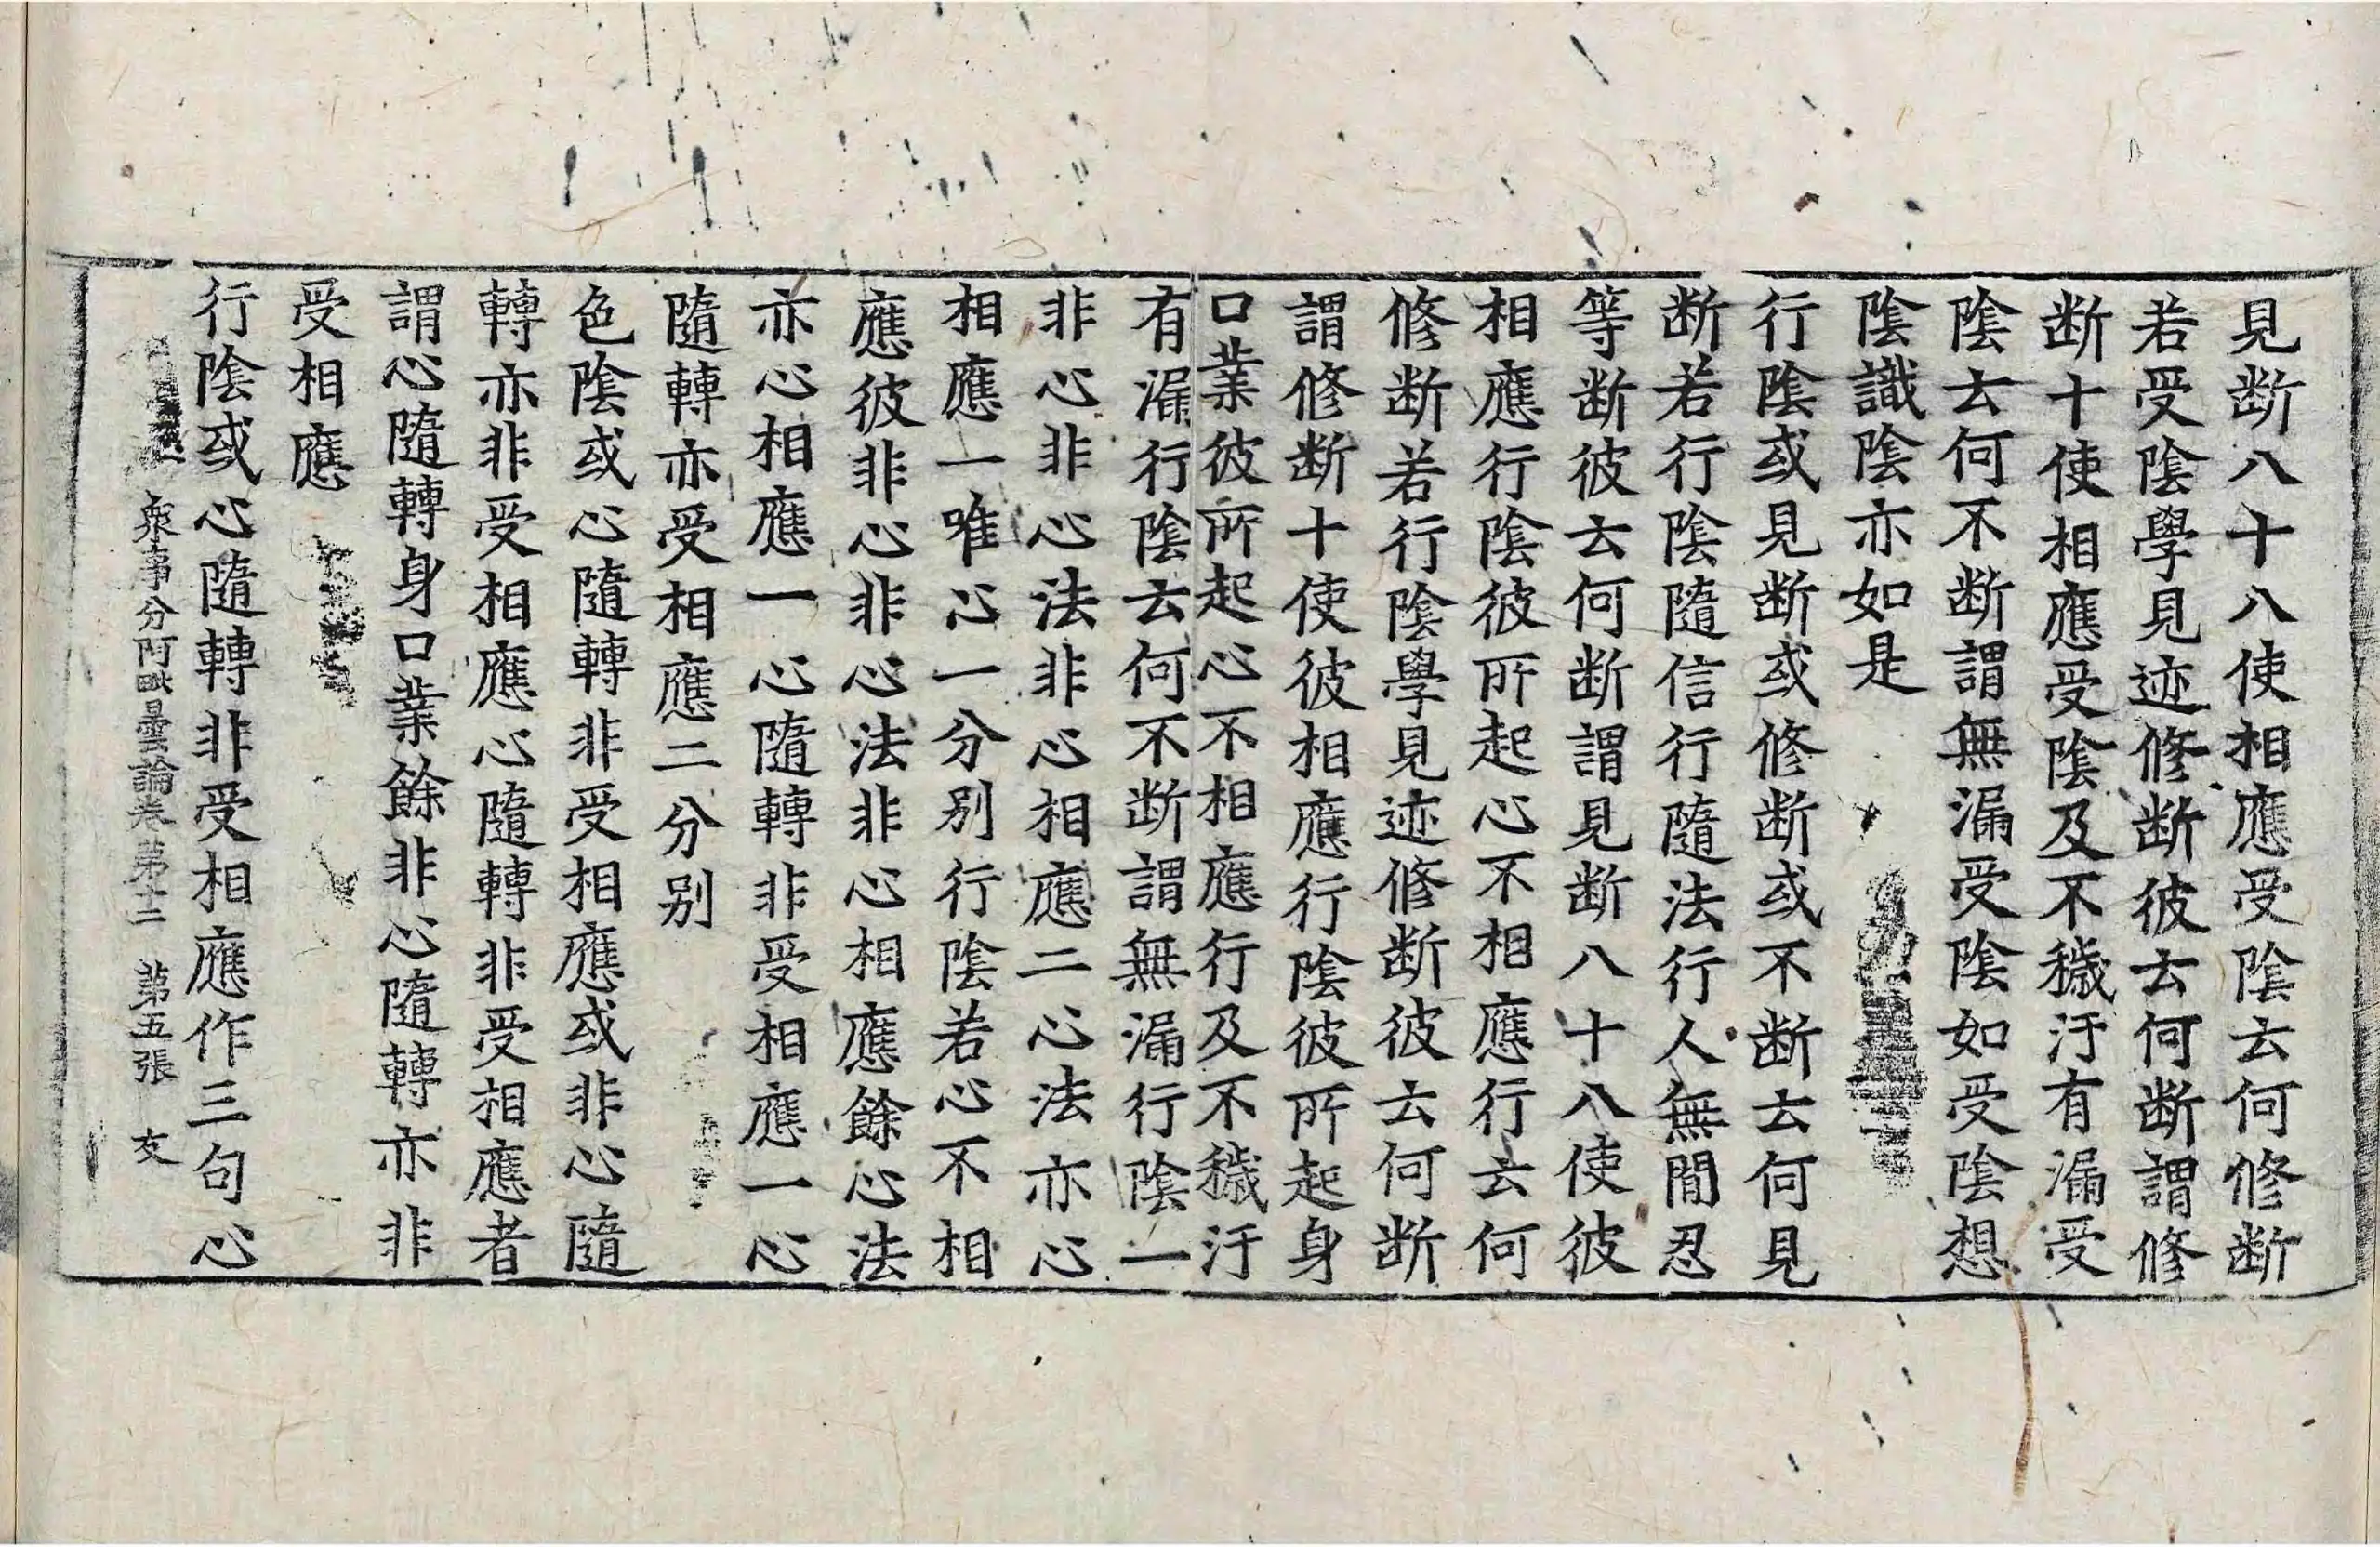 見断八十八使相應受陰云何修断
若受陰學見迹修断彼云何断謂修
断十使相應受陰及不穢汙有漏受
陰云何不断謂無漏受陰如受陰想
陰識陰亦如是
行陰或見断或修断或不断云何見
断若行陰隨信行隨法行人無間忍
等断彼云何断謂見断八十八使彼
相應行陰彼所起心不相應行云何
修断若行陰學見迹修断彼云何断
謂修断十使彼相應行陰彼所起身
口業彼所起心不相應行及不穢汙
有漏行陰云何不断謂無漏行陰一
非心非心法非心相應二心法亦心
相應一唯心一分别行陰若心不相
應彼非心非心法非心相應餘心法
亦心相應一心隨轉非受相應一心
隨轉亦受相應二分别
色陰或心隨轉非受相應或非心隨
轉亦非受相應心隨轉非受相應者
謂心隨轉身口業餘非心隨轉亦非
受相應
行陰或心隨轉非受相應作三句心
衆事分阿毗曇論卷第十二 第五張 友